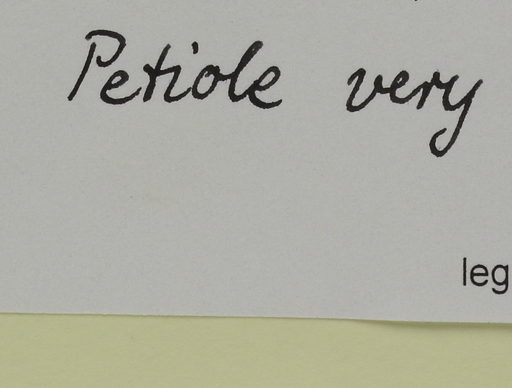 Petiole very
leg